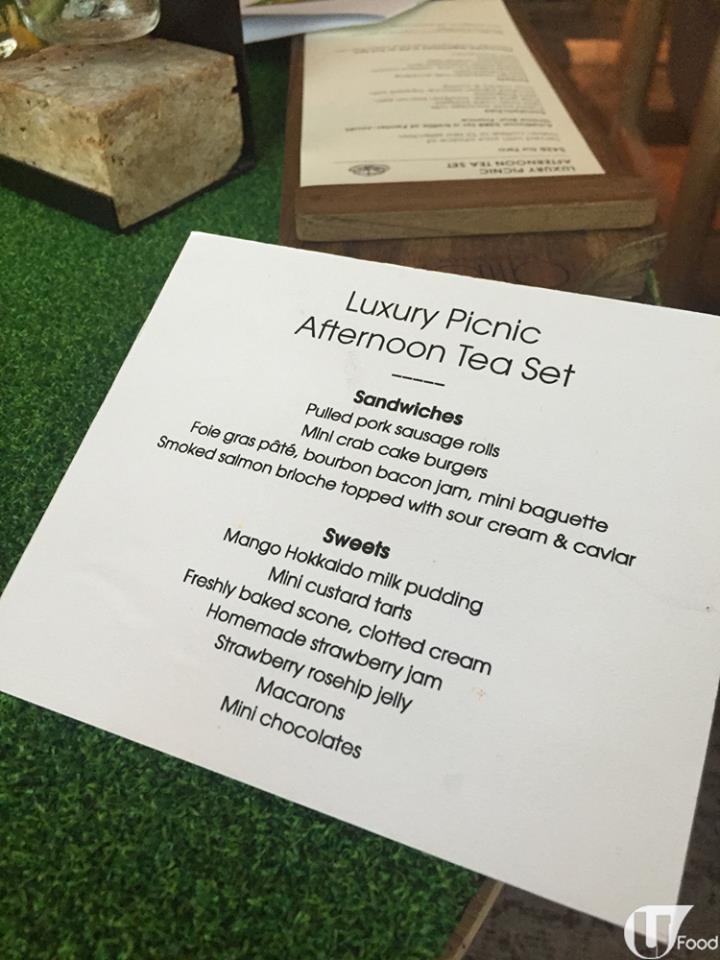 LUXURY PICNIC
AFTERNOON TEA SET
Luxury Picnic
Afternoon Tea Set
-----
Sandwiches
Pulled pork sausage rolls
Mini crab cake burgers
Foie gras pâté, bourbon bacon jam, mini baguette
Smoked salmon brioche topped with sour cream & caviar
Sweets
Mango Hokkaido milk pudding
Mini custard tarts
Freshly baked scone, clotted cream
Homemade strawberry jam
Strawberry rosehip jelly
Macarons
Mini chocolates
U Food